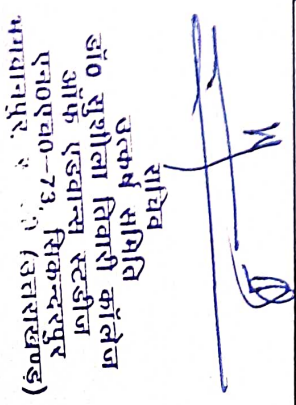 सचिव
उत्कर्ष समिति
डॉ0 सुशीला तिवारी कॉलेज
ऑफ एडवान्स स्टडीज
एन0एच0-73, सिकन्दरपुर
भगवानपुर, (उत्तराखण्ड)